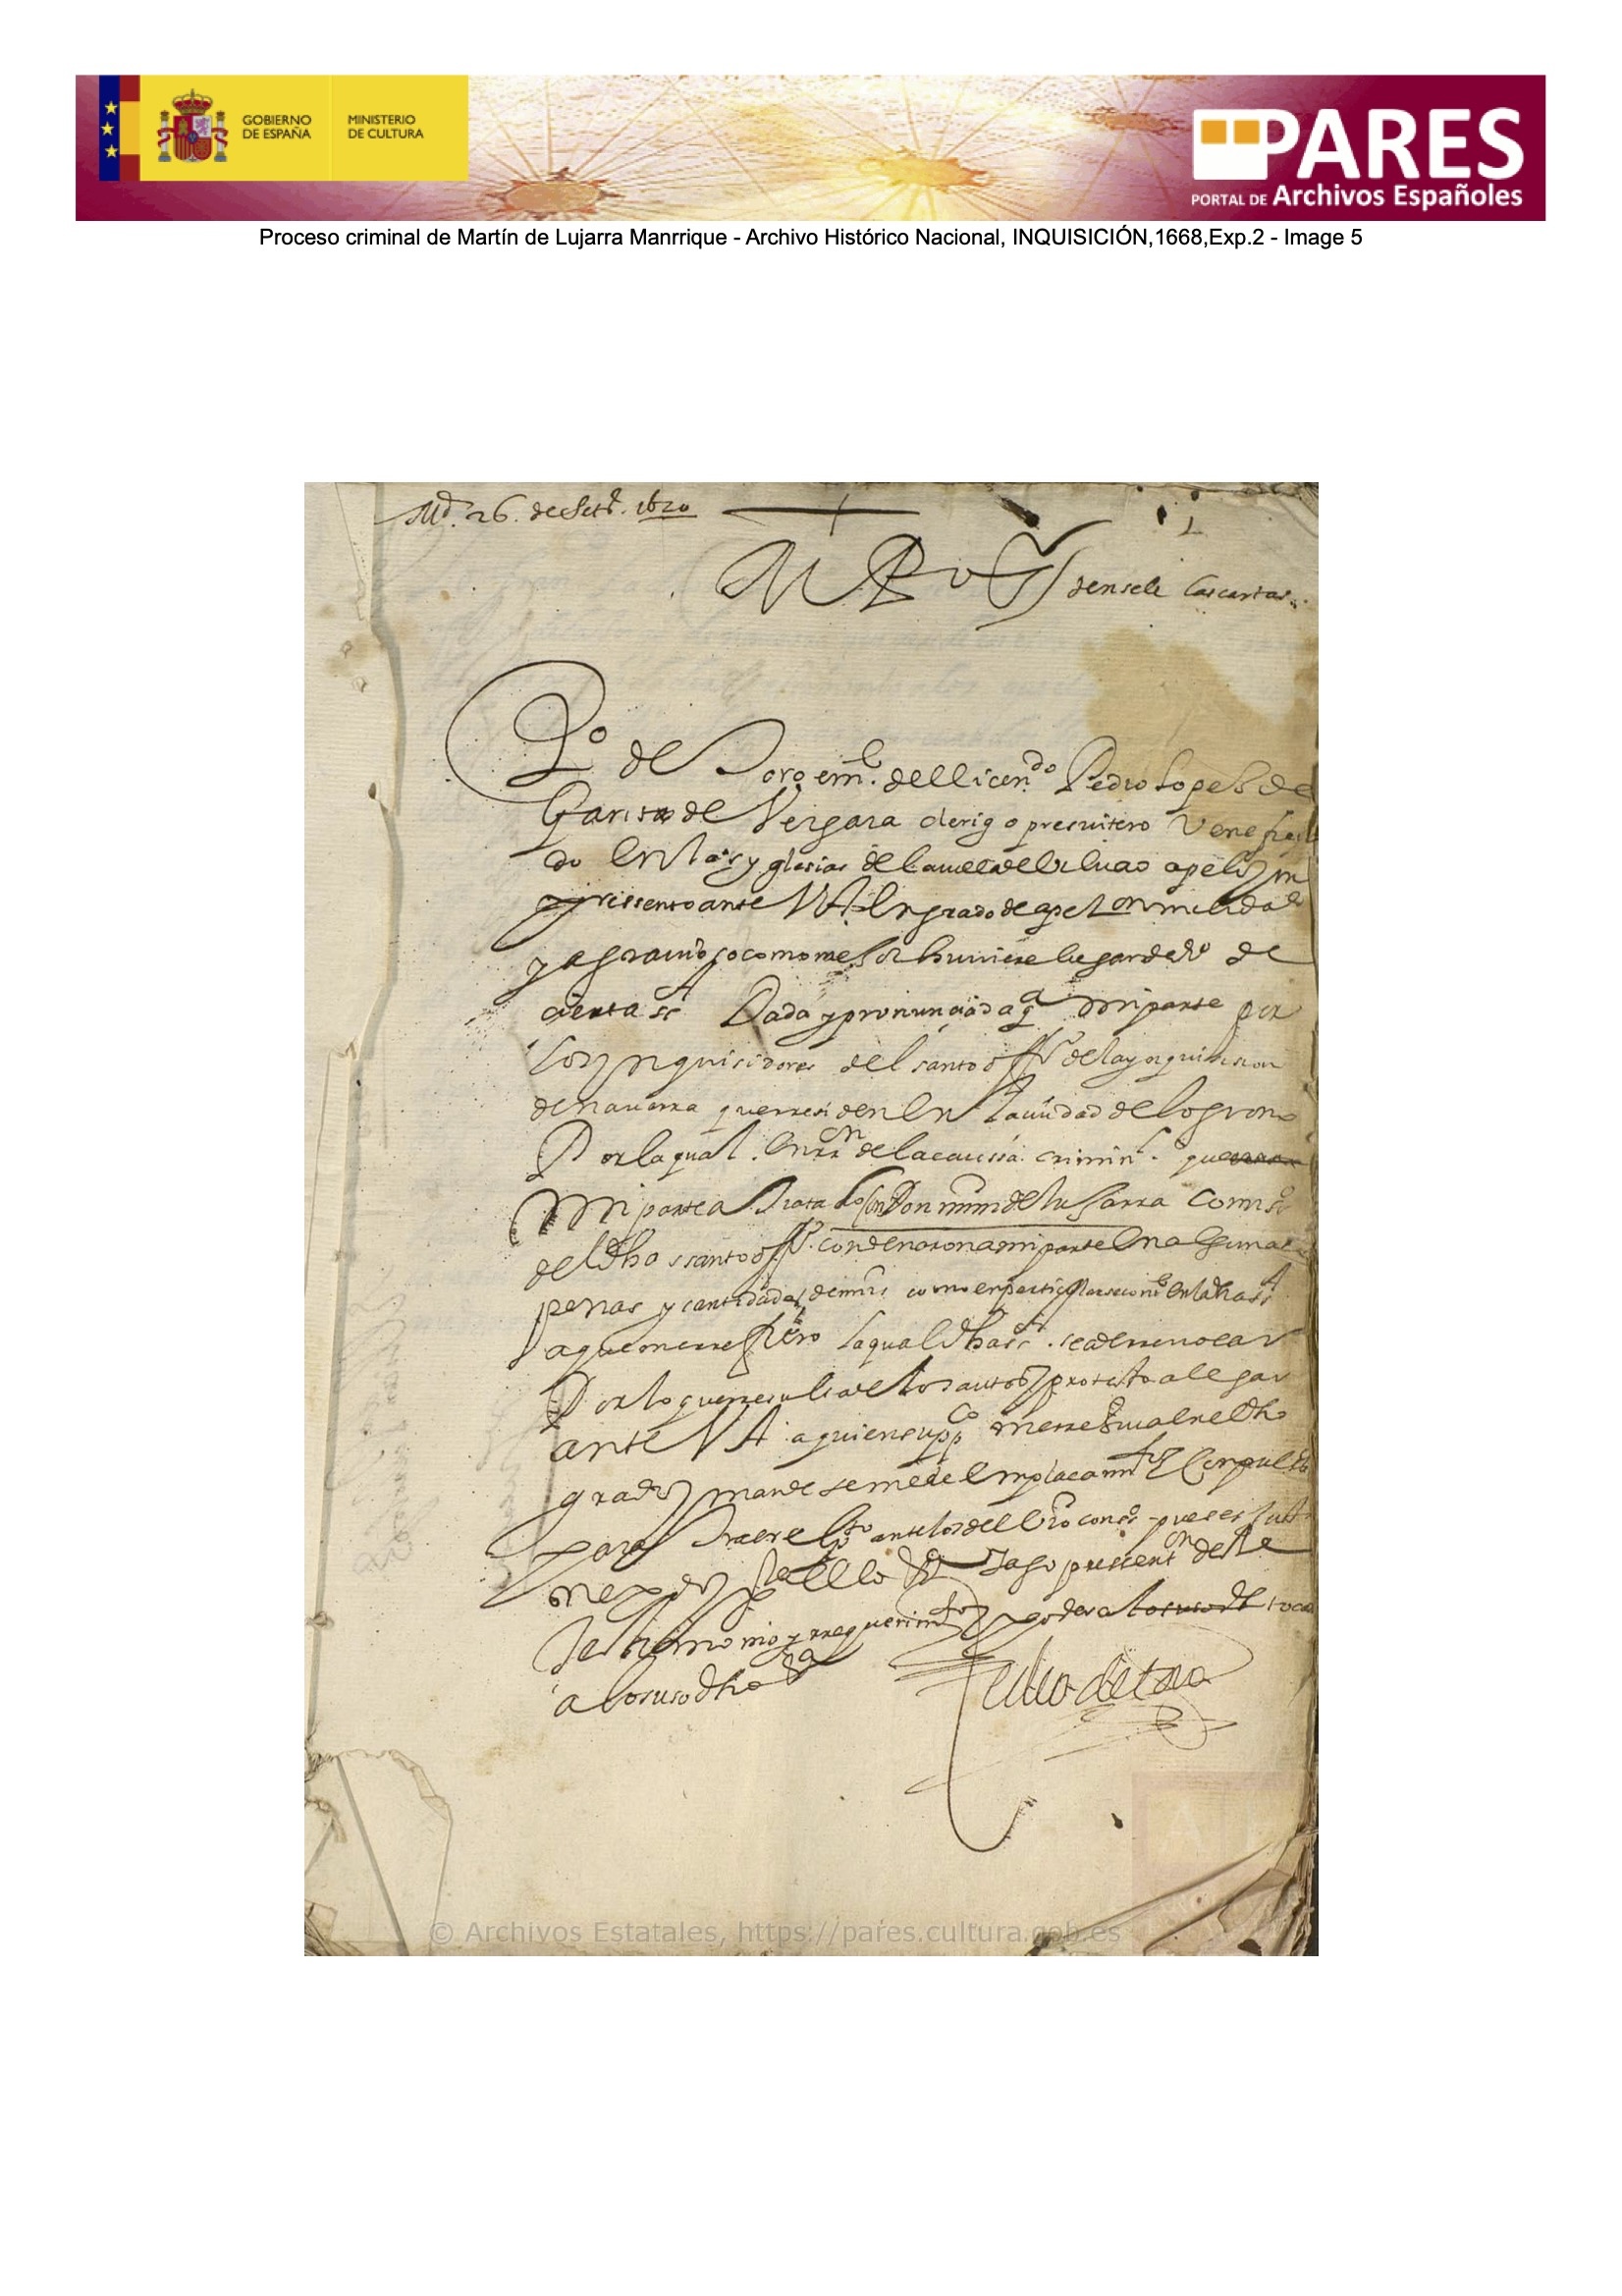 GOBIERNO
DE ESPAÑA
MINISTERIO
DE CULTURA
PARES
PORTAL DE Archivos Españoles
Proceso criminal de Martín de Lujarra Manrrique - Archivo Histórico Nacional, INQUISICIÓN,1668,Exp.2 - Image 5
Md. 26. de Setr. 1620
M P Sr densele las cartas
Po de Soro en e. del licendo Pedro Lopes de
Garita de Vergara clerigo presvitero Venefici
do en las yglesias de la villa de Viluao apelo y me
pressento ante V A. en grado de apelon nulidad
y agravio o como mejor huviere lugar de dro de
cierta sa Dada y pronunciada qa mi parte por
los ynquisidores del santo offo de la ynquisision
de navarra que rresiden en la ciudad de logrono
Por la qual. en rron de la caussa criminl. que
mi parte a tratado con Don mrn de lu Jarra comiso
del dho ssanto offo. condenaron a mi parte en algunas
penas y cantidades de mrs como en particular se contiene en la dha sa
a que me rrefiero la qual dha sa. se a de rrevocar
Por lo que rresulta de los autos y protesto alegar
ante V A. a quien suppco me rresciua en el dho
grado y mande se me de emplacamto y conpulsa
para traer el pto ante los del vro conso. pues es justa
para ello ett Hago pressenton deste
testimonio y rrequerimto y poder
a lo suso dho
Pedro de soro
© Archivos Estatales, https://pares.cultura.gob.es